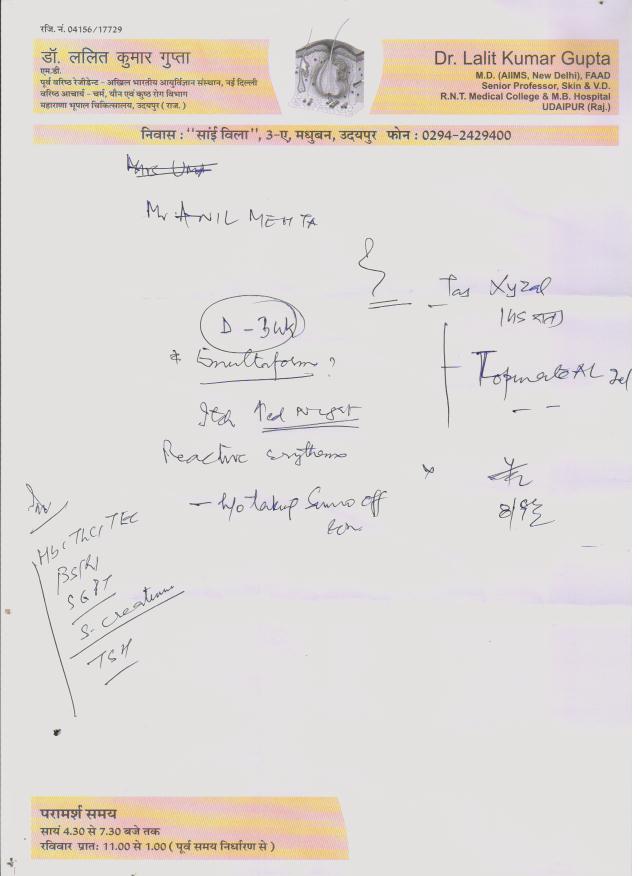 रजि. नं. 04156/17729
डॉ. ललित कुमार गुप्ता
एम.डी.
पूर्व वरिष्ठ रेजीडेन्ट - अखिल भारतीय आयुर्विज्ञान संस्थान, नई दिल्ली
वरिष्ठ आचार्य - चर्म, यौन एवं कुष्ठ रोग विभाग
महाराणा भूपाल चिकित्सालय, उदयपुर ( राज. )
Dr. Lalit Kumar Gupta
M.D. (AIIMS, New Delhi), FAAD
Senior Professor, Skin & V.D.
R.N.T. Medical College & M.B. Hospital
UDAIPUR (Raj.)
निवास : "सांई विला", 3-ए, मधुबन, उदयपुर फोन : 0294-2429400
Mr ANIL MEHTA
Xyzal
1 HS
D - 3wk
gel
Night
Reactive erythema
- h/o taking
Hb, TLC, TEC
SGPT
S. Creatinine
TSH
परामर्श समय
सायं 4.30 से 7.30 बजे तक
रविवार प्रात: 11.00 से 1.00 ( पूर्व समय निर्धारण से )